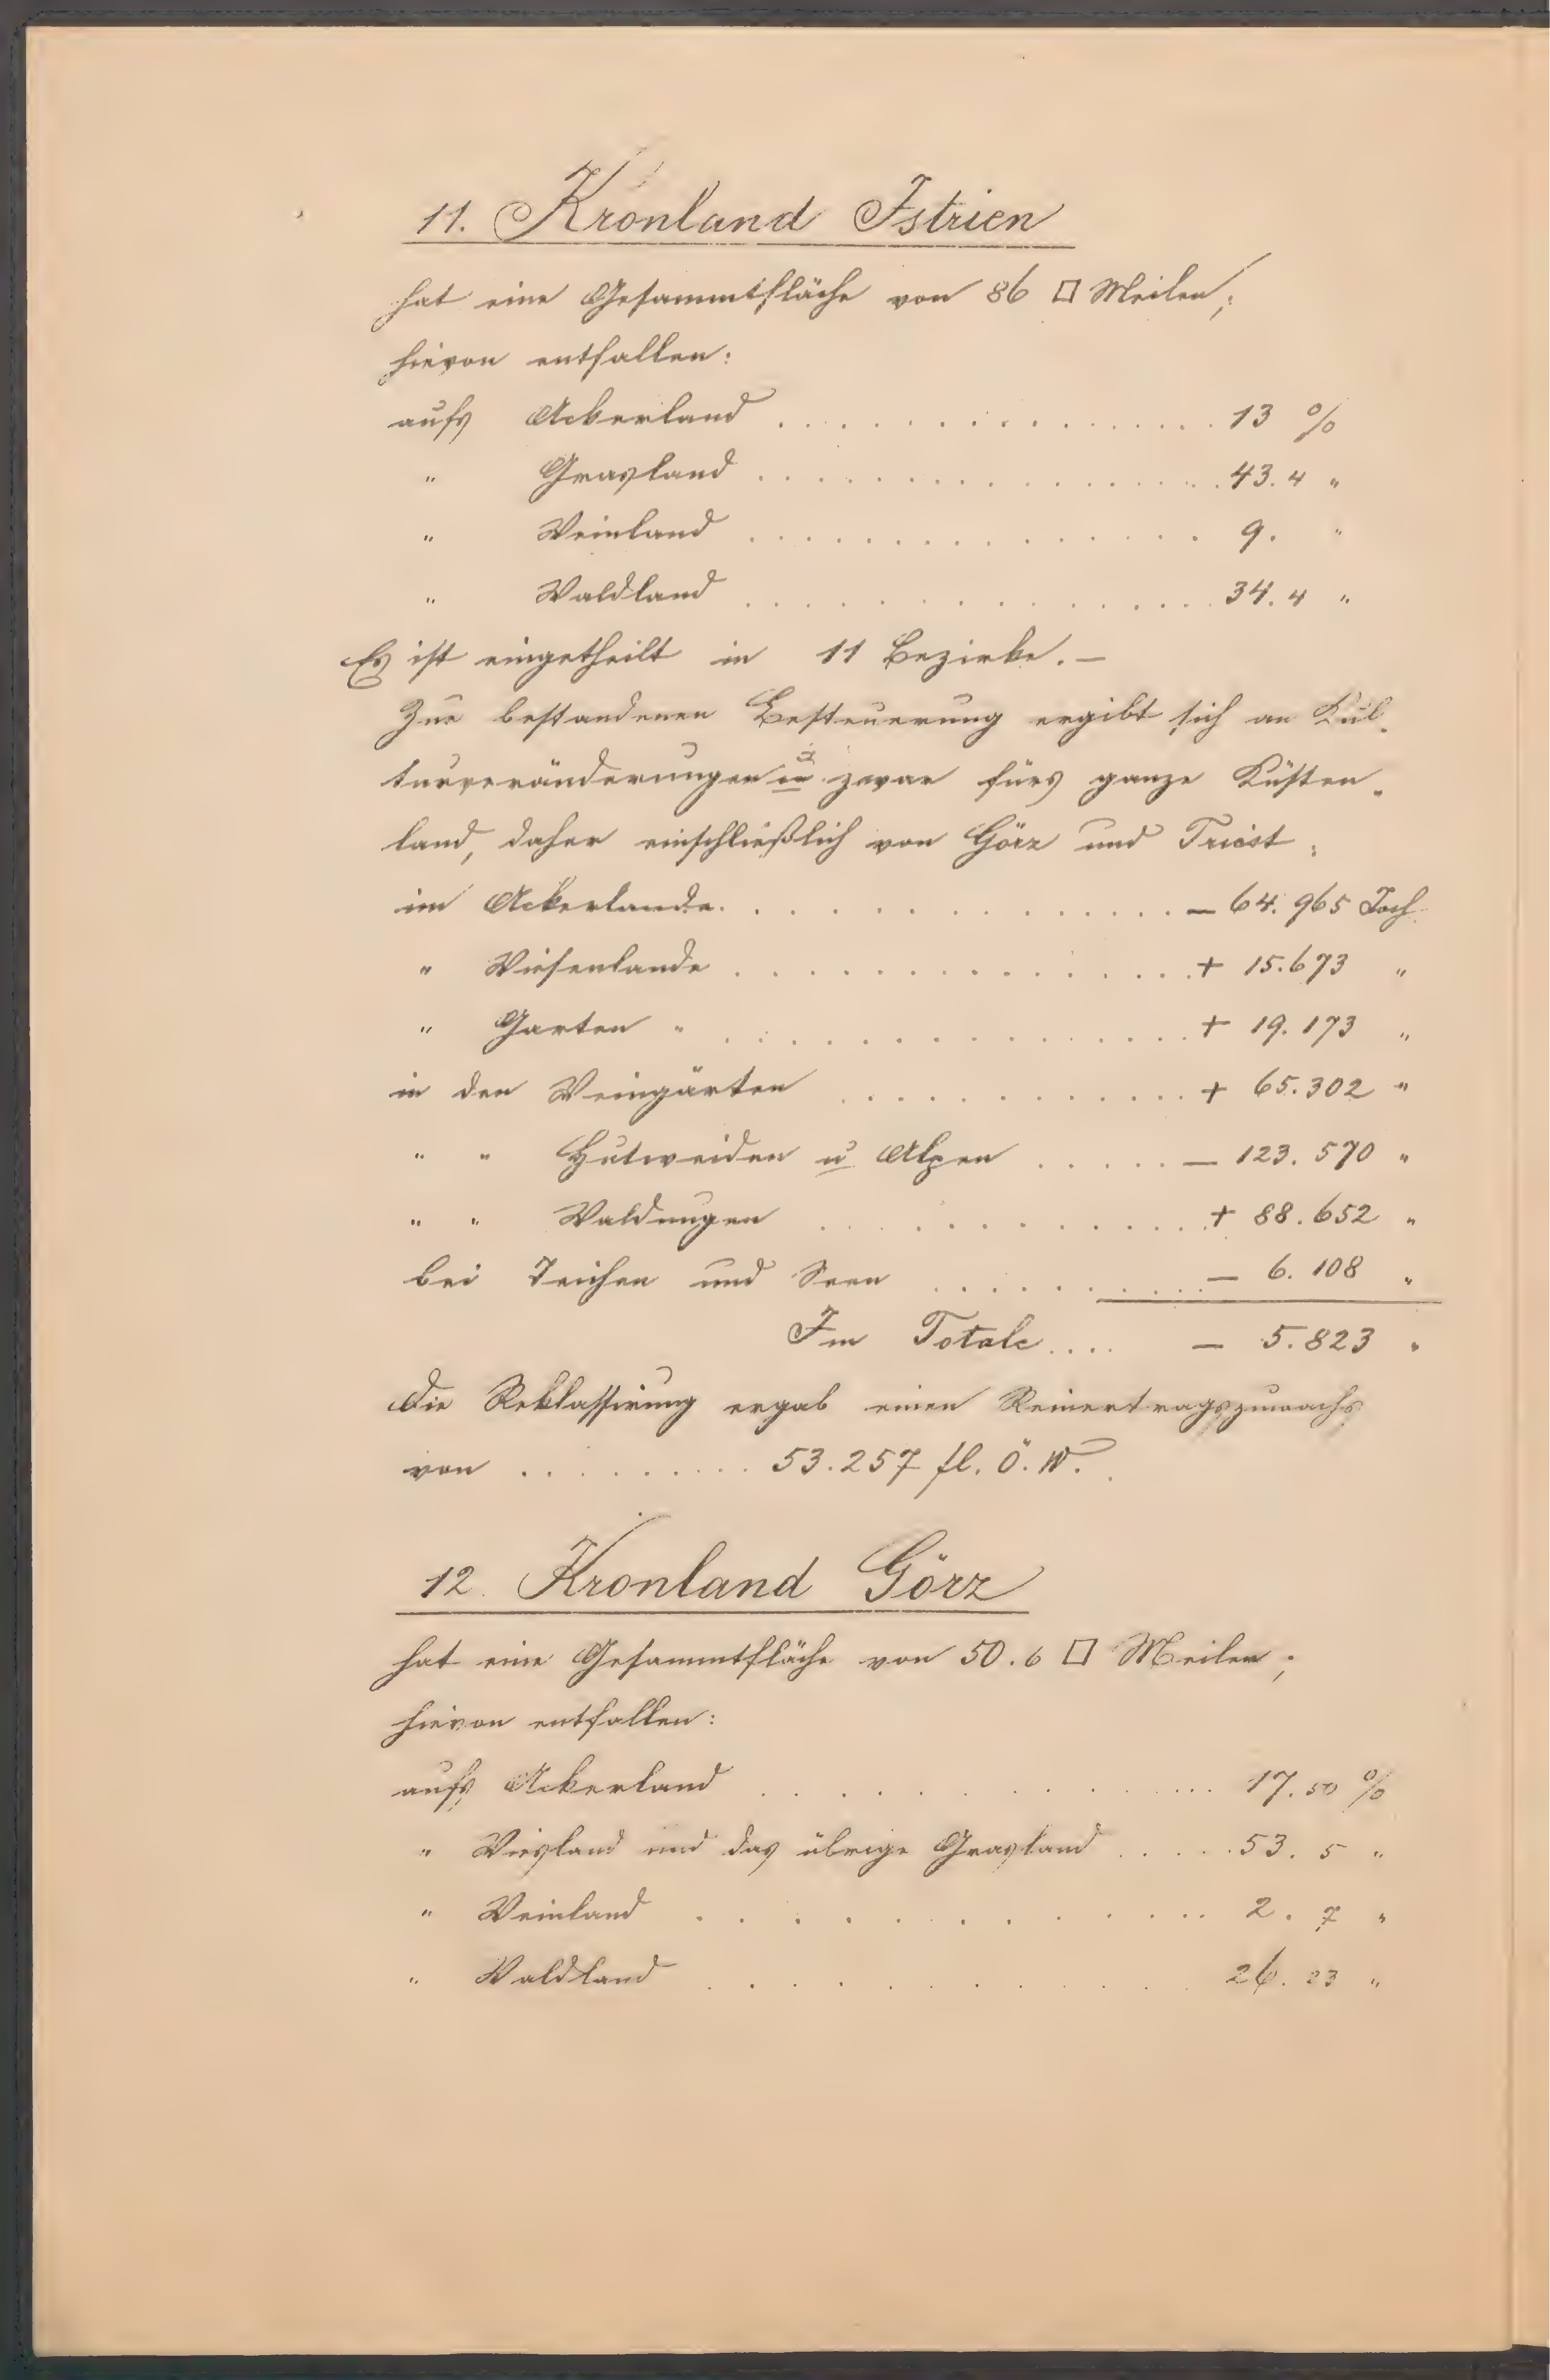 11. Kronland Istrien
hat eine Gesammtfläche von 86 □ Meilen;
hievon entfallen:
aufs Ackerland . . . . . . . . . . . . . . . 13 %
" Grasland . . . . . . . . . . . . . . . 43.4 "
" Weinland . . . . . . . . . . . . . . . 9. "
" Waldland . . . . . . . . . . . . . . . 34.4 "
Es ist eingetheilt in 11 Bezirke. –
Zur bestandenen Besteuerung ergibt sich an Kul-
turveränderungen u. zwar fürs ganze Küsten-
land, daher einschließlich von Görz und Triest:
im Ackerlande . . . . . . . . . . . . . . – 64.965 Joch
" Wiesenlande . . . . . . . . . . . . . . + 15.673 "
" Garten " . . . . . . . . . . . . . . + 19.173 "
in den Weingärten . . . . . . . . . . . . + 65.302 "
" " Hutweiden u Alpen . . . . . – 123.570 "
" " Waldungen . . . . . . . . . . . . + 88.652 "
bei Teichen und Seen . . . . . . . . . – 6.108 "
Im Totale .... – 5.823 "
Die Reklassirung ergab einen Reinertragszuwachs
von . . . . . . . . . 53.257 fl. Ö. W.
12. Kronland Görz
hat eine Gesammtfläche von 50.6 □ Meilen;
hievon entfallen:
aufs Ackerland . . . . . . . . . . . . 17.50 %
" Wiesland und das übrige Grasland . . . . . 53.5 "
" Weinland . . . . . . . . . . . . . 2.7 "
" Waldland . . . . . . . . . . . . 26.23 "